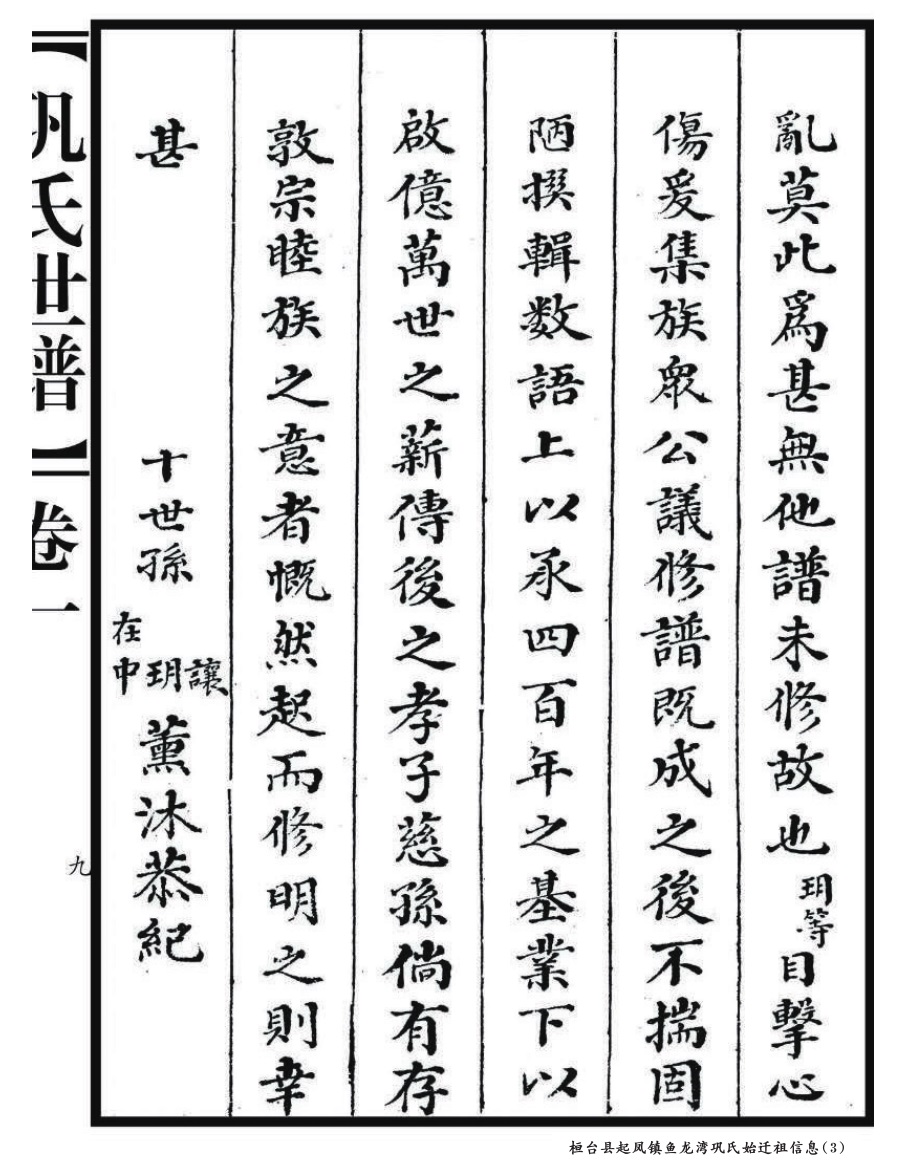 亂莫此爲甚無他譜未修故也玥等目擊心
傷爰集族衆公議修譜既成之後不揣固
陋撰輯数語上以承四百年之基業下以
啟億萬世之薪傳後之孝子慈孫倘有存
敦宗睦族之意者慨然起而修明之則幸
甚
十世孫 讓玥在中 薰沐恭紀
【巩氏世譜】卷一
九
桓台县起凤镇鱼龙湾巩氏始迁祖信息(3)